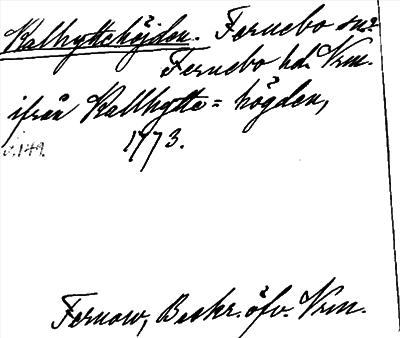 Kalhyttehöjden. Fernebo sn?
Fernebo hd. Vrm.
ifrån Kallhytte = högden,
1773.
s. 149.
Fernow, Beskr. öfv. Vrm.